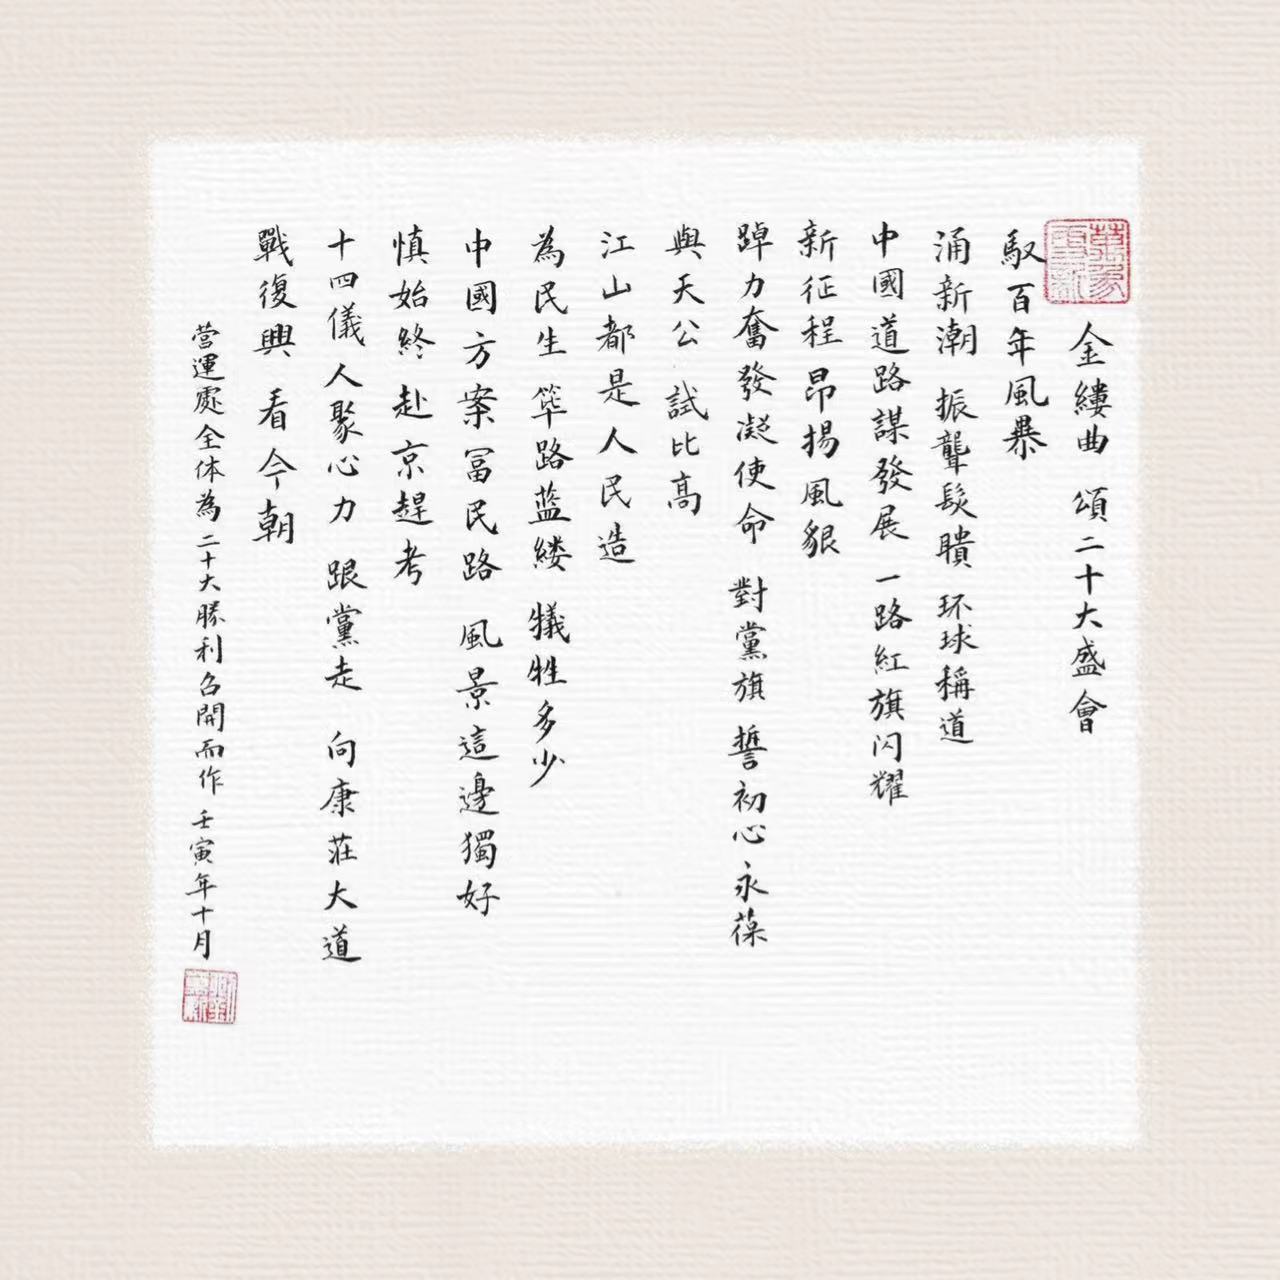 萬象更新
金縷曲 頌二十大盛會
馭百年風暴
涌新潮 振聾髮聵 环球稱道
中國道路謀發展 一路紅旗閃耀
新征程昂揚風貌
踔力奮發凝使命 對黨旗 誓初心永葆
與天公 試比高
江山都是人民造
為民生 筚路蓝缕 犧牲多少
中國方案冨民路 風景這邊獨好
慎始終 赴京趕考
十四儀人聚心力 跟黨走 向康莊大道
戰復興 看今朝
營運處全体為二十大勝利召開而作 壬寅年十月